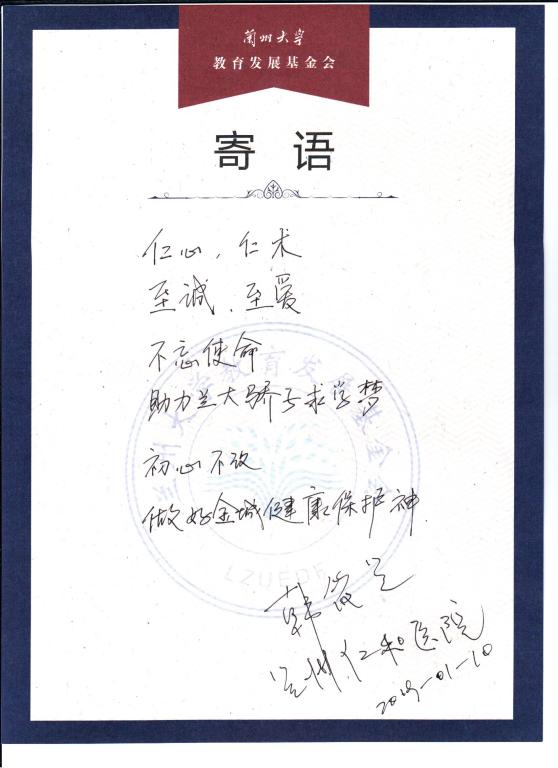 兰州大学
教育发展基金会
寄语
仁心、仁术
至诚、至爱
不忘使命
助力兰大骄子求学梦
初心不改
做好金城健康保护神
兰州大学教育发展基金会
LZUEDF
兰州仁和医院
2019-01-10